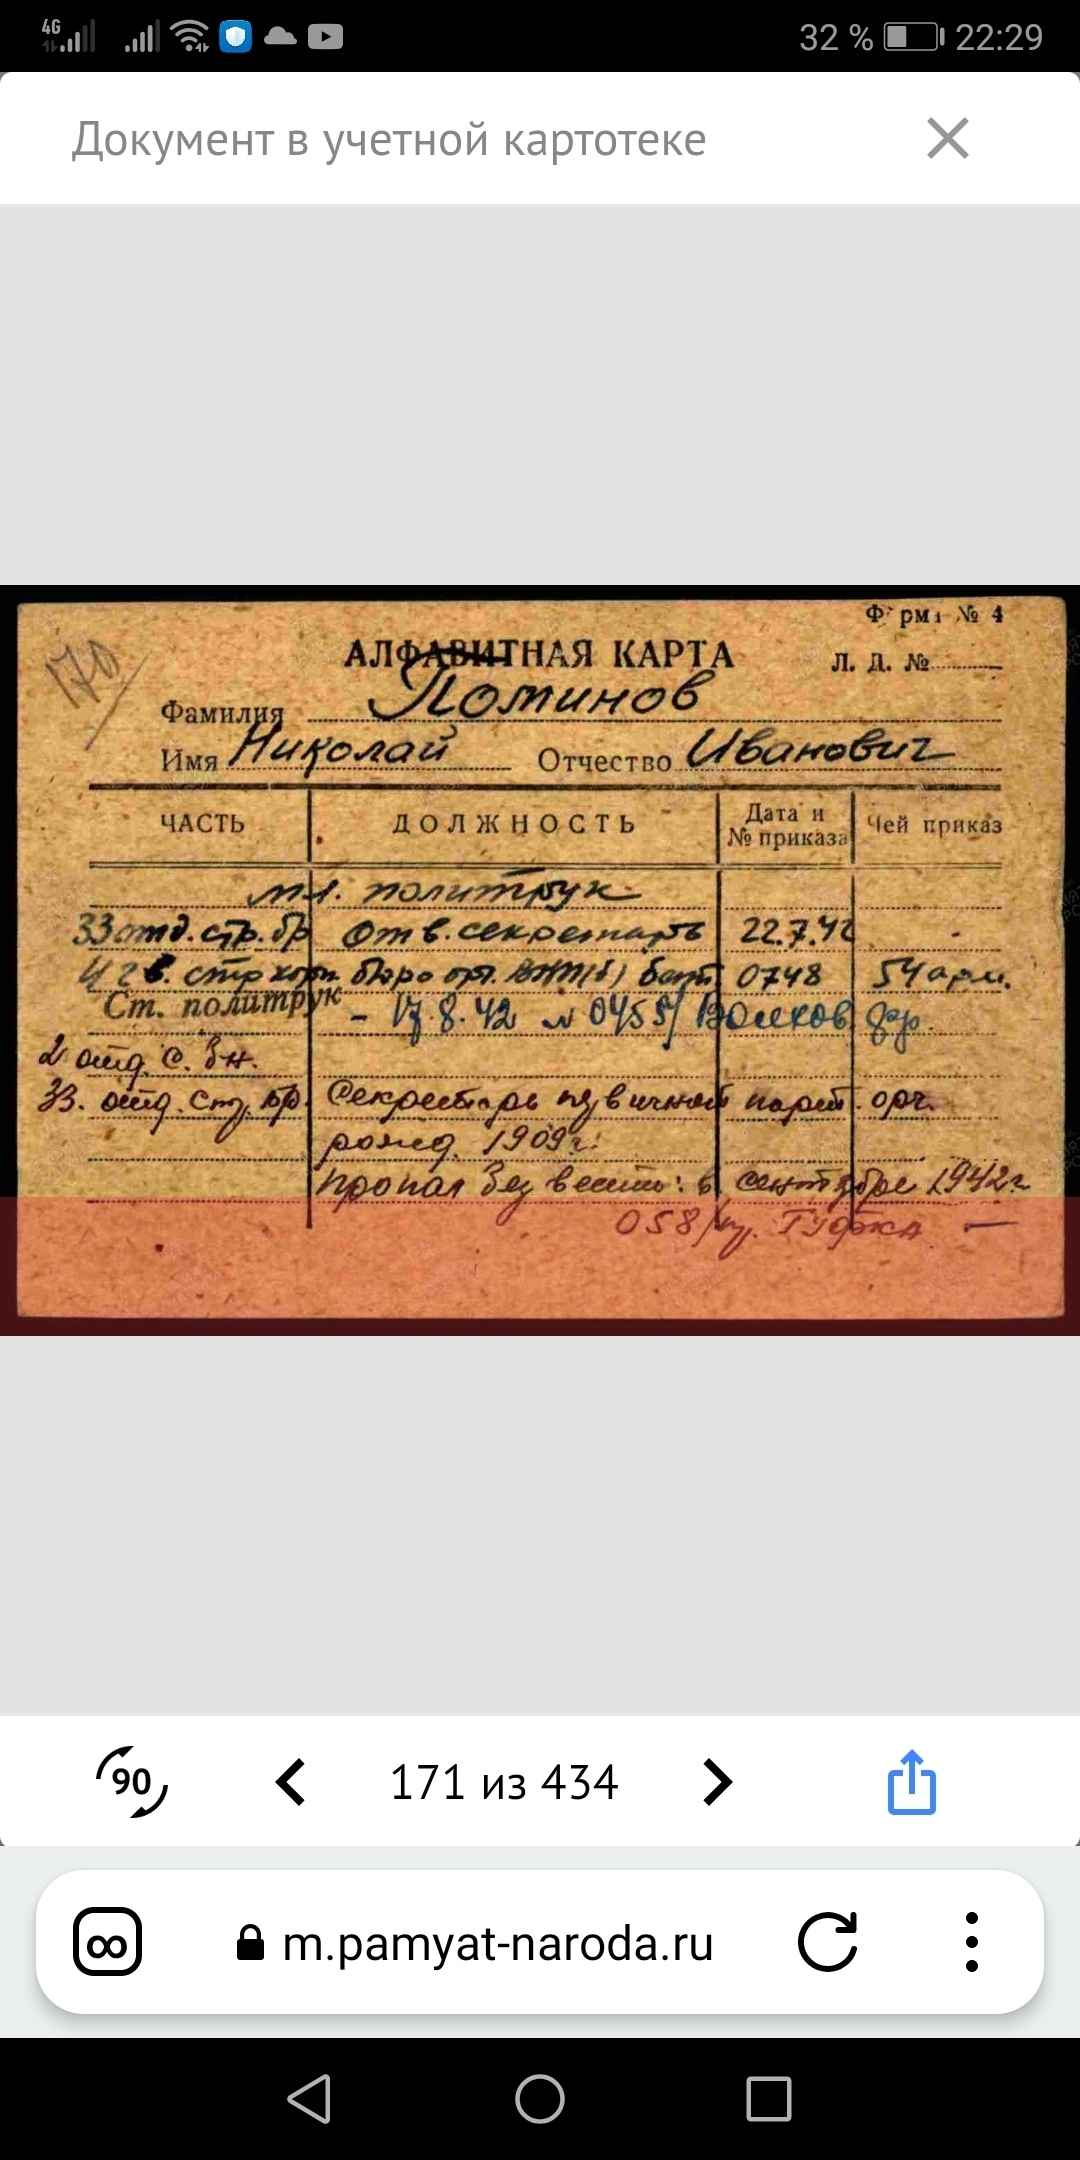 4G
32 % 22:29
Документ в учетной картотеке
Форма № 4
170
АЛФАВИТНАЯ КАРТА
Л. Д. №
Фамилия Поминов
Имя Николай Отчество Иванович
ЧАСТЬ ДОЛЖНОСТЬ Дата и № приказа Чей приказ
мл. политрук
33 отд. стр. бр Отв. секретарь 22.7.42
4 гв. стр корп. бюро орг. ВКП(б) бат. 0748 54 арм.
Ст. политрук - 17.8.42 № 0455/ Волхов. фр.
2 отд. с. бн.
33. отд. стр. бр. Секретарь первичной парт. орг.
рожд. 1909г.
пропал без вести: в сентябре 1942г.
058/
90
171 из 434
m.pamyat-naroda.ru